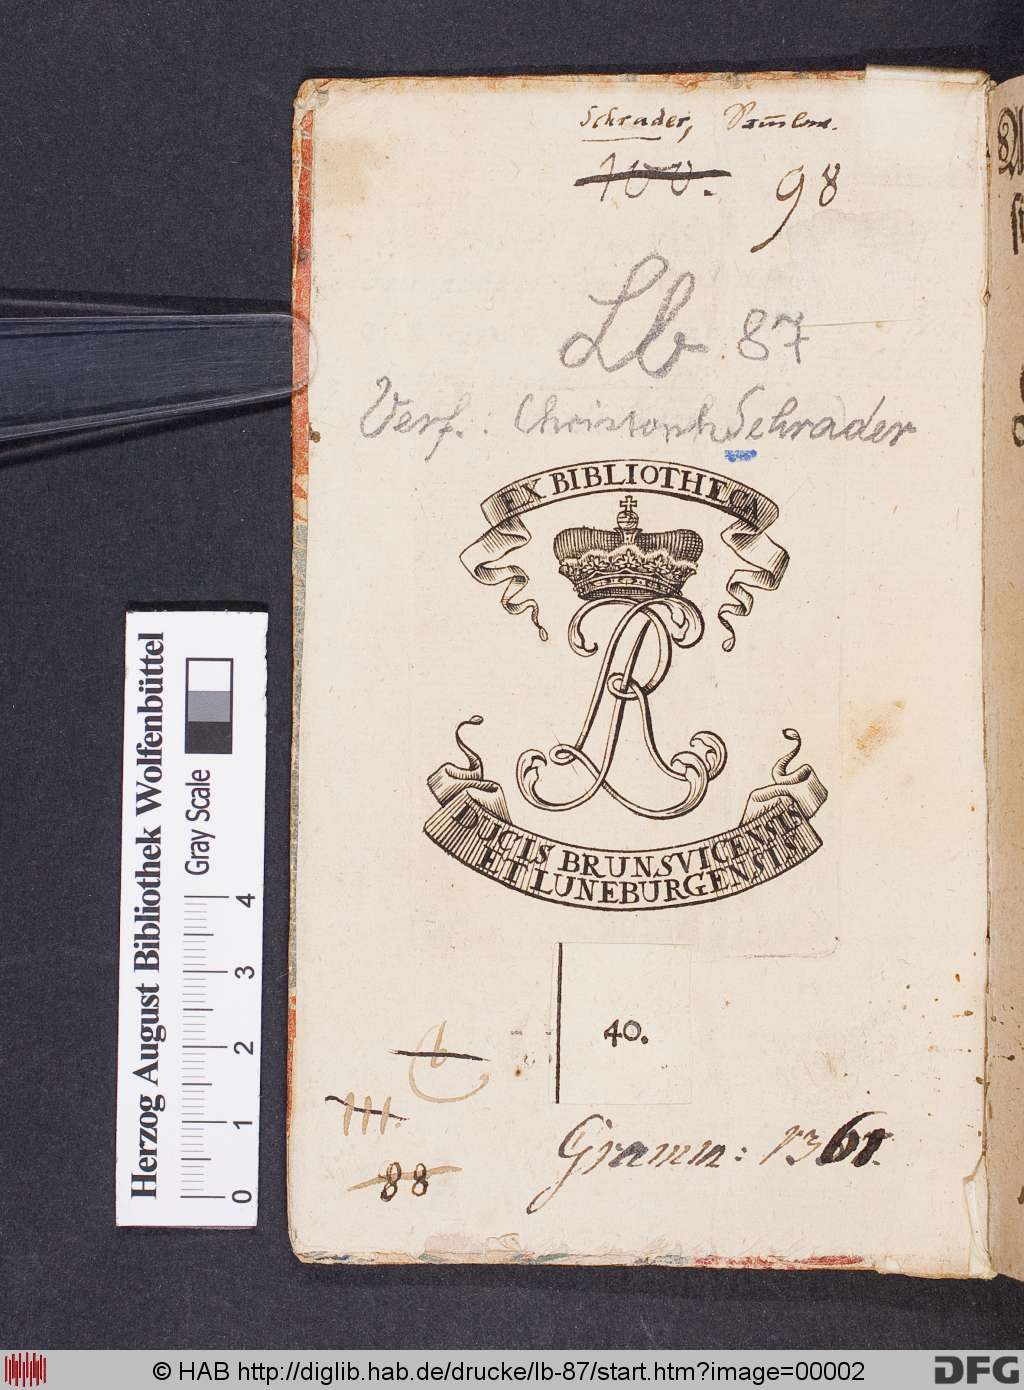 Schrader,
100. 98
Lb 87
Verf.: Christoph Schrader
EX BIBLIOTHECA
DUCIS BRUNSVICENSIS
ET LUNEBURGENSIS
40.
III.
88
Gramm: 1361.
Herzog August Bibliothek Wolfenbüttel
Gray Scale
0 1 2 3 4
© HAB http://diglib.hab.de/drucke/lb-87/start.htm?image=00002
DFG